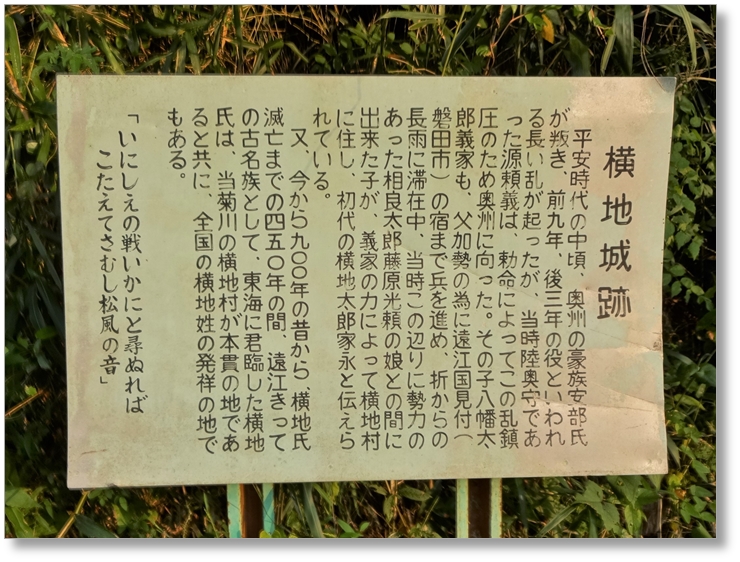 横地城跡
平安時代の中頃、奥州の豪族安部氏
が叛き、前九年、後三年の役といわれ
る長い乱が起ったが、当時陸奥守であ
った源頼義は、勅命によってこの乱鎮
圧のため奥州に向った。その子八幡太
郎義家も、父加勢の為に遠江国見付（
磐田市）の宿まで兵を進め、折からの
長雨に滞在中、当時この辺りに勢力の
あった相良太郎藤原光頼の娘との間に
出来た子が、義家の力によって横地村
に住し、初代の横地太郎家永と伝えら
れている。
又、今から九〇〇年の昔から、横地氏
滅亡までの四五〇年の間、遠江きって
の古名族として、東海に君臨した横地
氏は、当菊川の横地村が本貫の地であ
ると共に、全国の横地姓の発祥の地で
もある。
「いにしえの戦いかにと尋ぬれば
こたえてさむし松風の音」